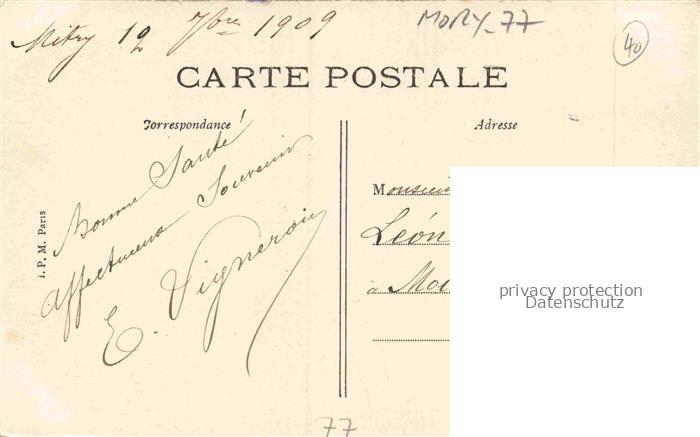 Mitry 12 7bre 1909
MORY-77
40
CARTE POSTALE
Correspondance
Adresse
Bonne Santé!
Affectueux Souvenir
E. Vigneron
A. P. M. Paris
Monsieur
Léon
à
privacy protection
Datenschutz
77